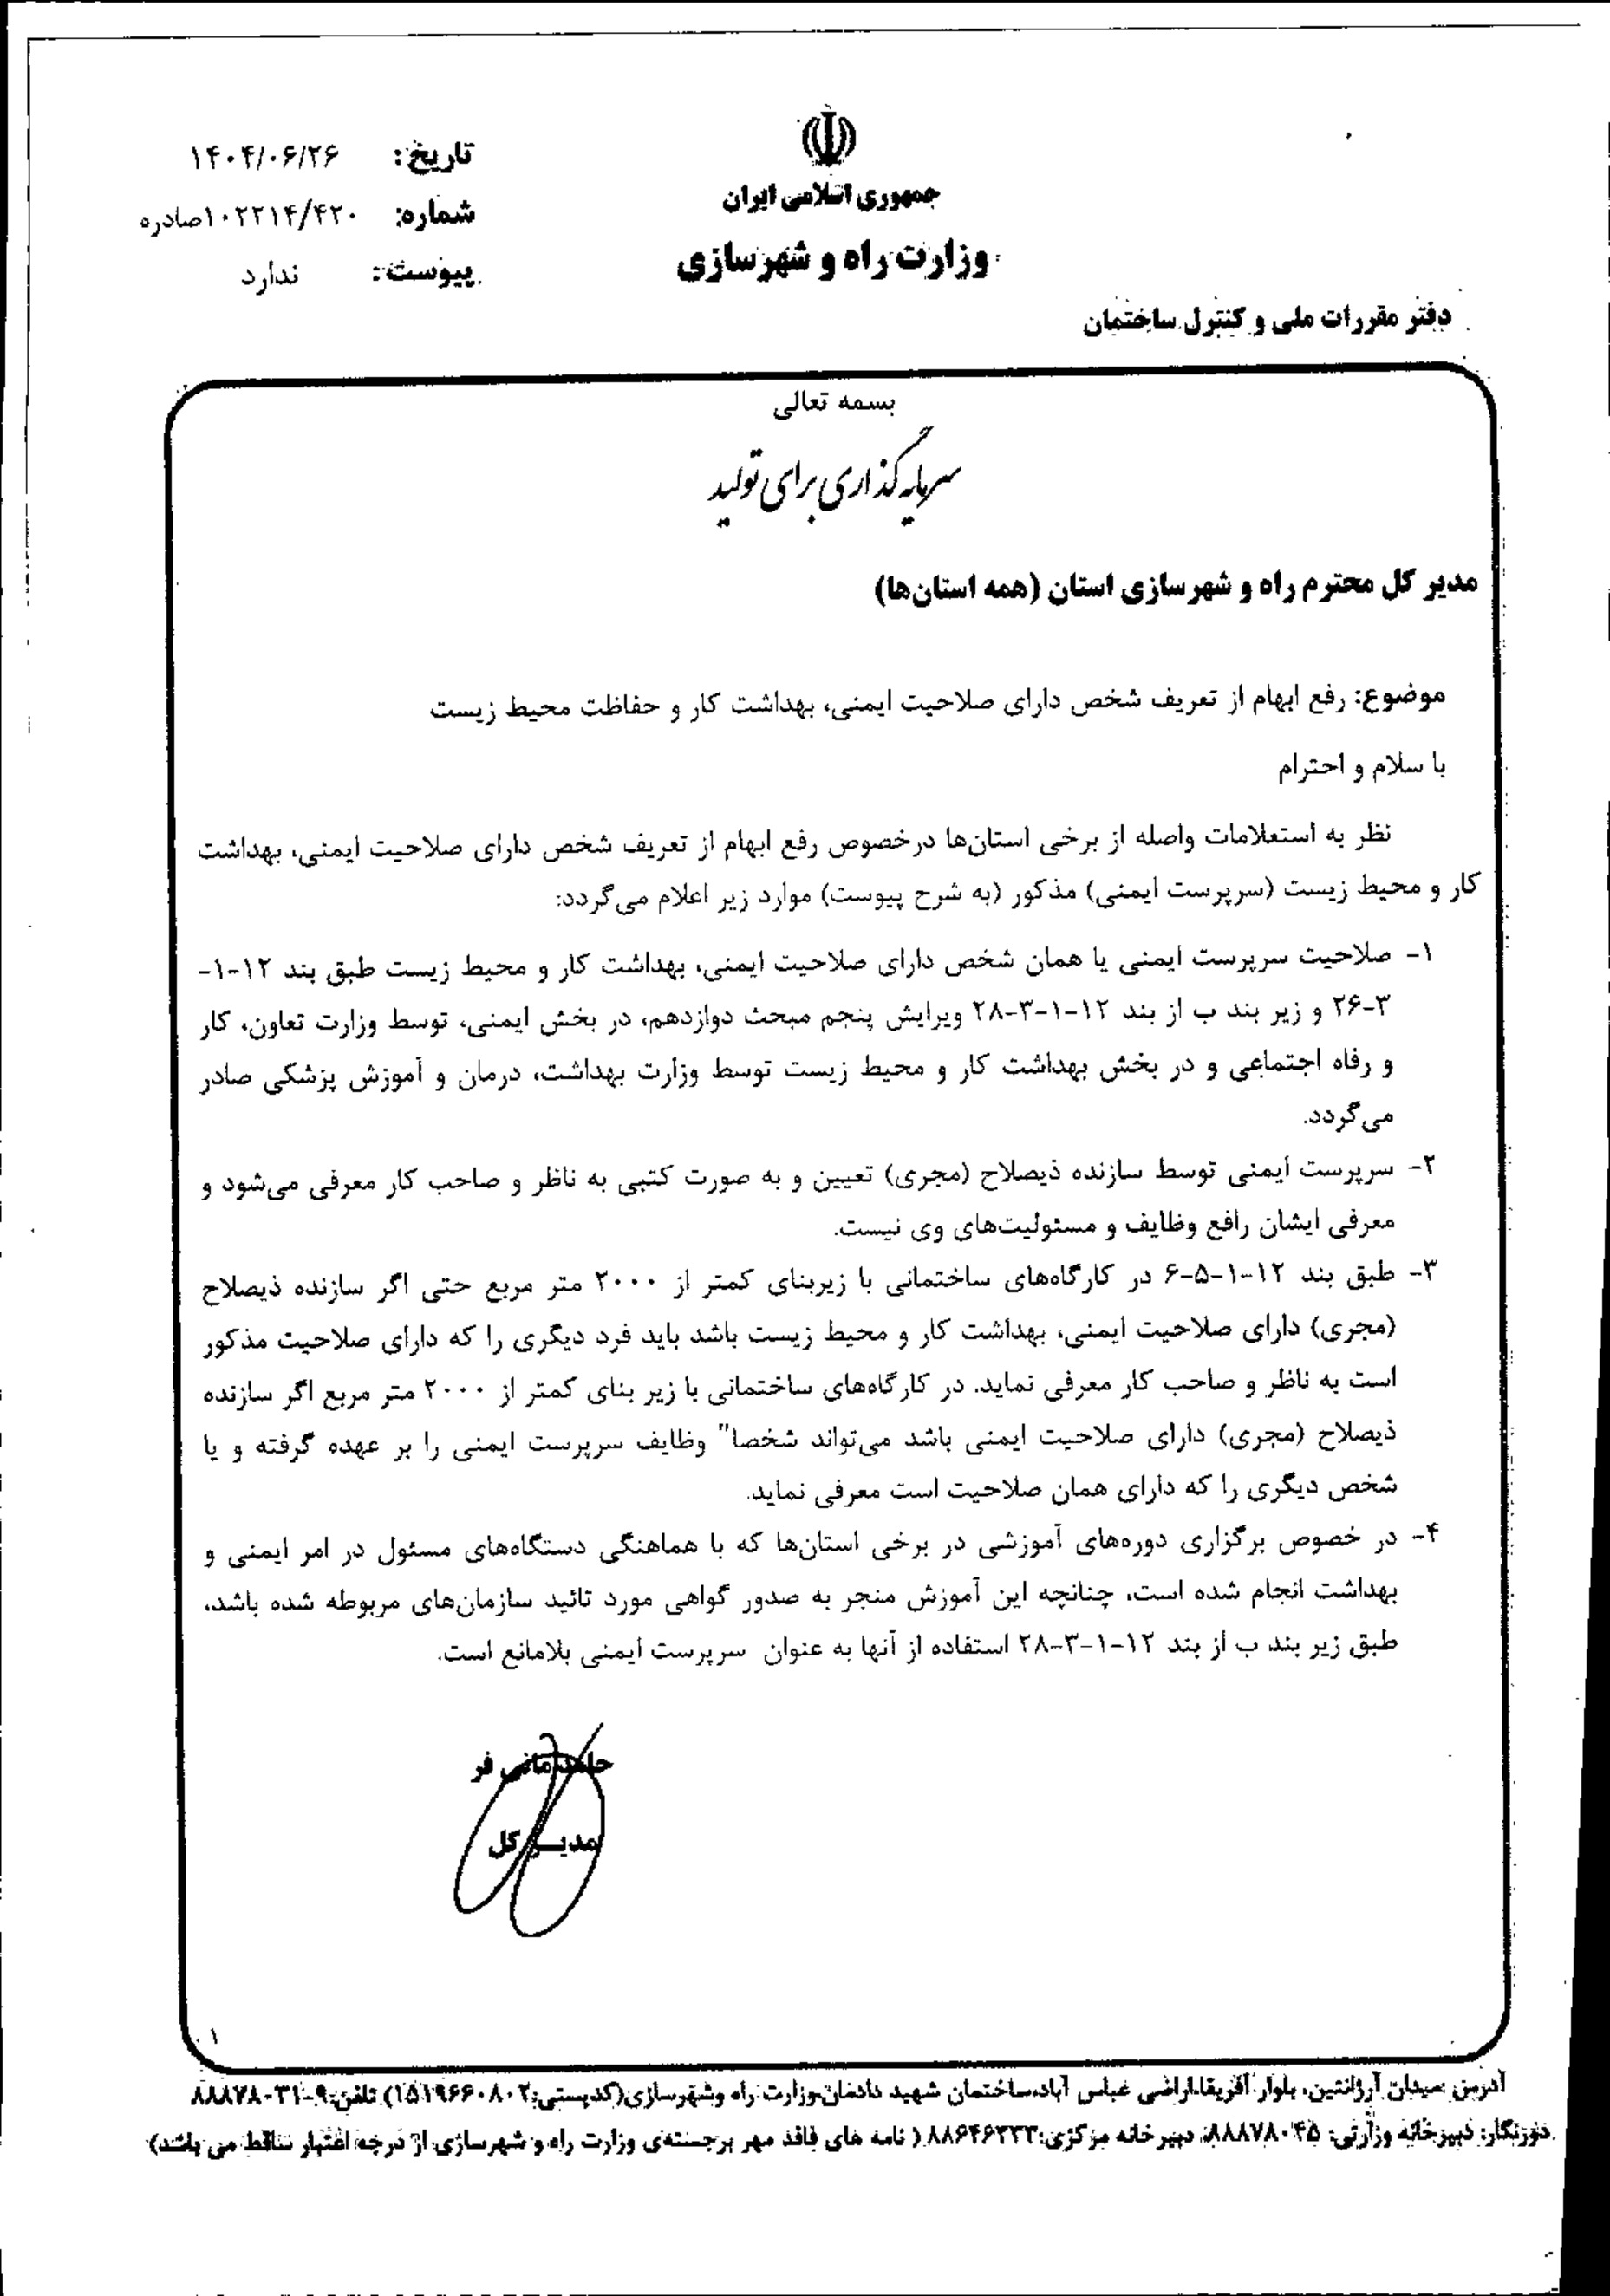 جمهوری اسلامی ایران
وزارت راه و شهرسازی
دفتر مقررات ملی و کنترل ساختمان
تاریخ: ۱۴۰۴/۰۶/۲۶
شماره: ۱۰۲۲۱۴/۴۲۰صادره
پیوست: ندارد
بسمه تعالی
سرمایه‌گذاری برای تولید
مدیر کل محترم راه و شهرسازی استان (همه استان‌ها)
موضوع: رفع ابهام از تعریف شخص دارای صلاحیت ایمنی، بهداشت کار و حفاظت محیط زیست
با سلام و احترام
نظر به استعلامات واصله از برخی استان‌ها درخصوص رفع ابهام از تعریف شخص دارای صلاحیت ایمنی، بهداشت
کار و محیط زیست (سرپرست ایمنی) مذکور (به شرح پیوست) موارد زیر اعلام می‌گردد:
۱- صلاحیت سرپرست ایمنی یا همان شخص دارای صلاحیت ایمنی، بهداشت کار و محیط زیست طبق بند ۱۲-۱-
۳-۲۶ و زیر بند ب از بند ۱۲-۱-۳-۲۸ ویرایش پنجم مبحث دوازدهم، در بخش ایمنی، توسط وزارت تعاون، کار
و رفاه اجتماعی و در بخش بهداشت کار و محیط زیست توسط وزارت بهداشت، درمان و آموزش پزشکی صادر
می‌گردد.
۲- سرپرست ایمنی توسط سازنده ذیصلاح (مجری) تعیین و به صورت کتبی به ناظر و صاحب کار معرفی می‌شود و
معرفی ایشان رافع وظایف و مسئولیت‌های وی نیست.
۳- طبق بند ۱۲-۱-۵-۶ در کارگاه‌های ساختمانی با زیربنای کمتر از ۲۰۰۰ متر مربع حتی اگر سازنده ذیصلاح
(مجری) دارای صلاحیت ایمنی، بهداشت کار و محیط زیست باشد باید فرد دیگری را که دارای صلاحیت مذکور
است به ناظر و صاحب کار معرفی نماید. در کارگاه‌های ساختمانی با زیر بنای کمتر از ۲۰۰۰ متر مربع اگر سازنده
ذیصلاح (مجری) دارای صلاحیت ایمنی باشد می‌تواند شخصا" وظایف سرپرست ایمنی را بر عهده گرفته و یا
شخص دیگری را که دارای همان صلاحیت است معرفی نماید.
۴- در خصوص برگزاری دوره‌های آموزشی در برخی استان‌ها که با هماهنگی دستگاه‌های مسئول در امر ایمنی و
بهداشت انجام شده است، چنانچه این آموزش منجر به صدور گواهی مورد تائید سازمان‌های مربوطه شده باشد،
طبق زیر بند ب از بند ۱۲-۱-۳-۲۸ استفاده از آنها به عنوان سرپرست ایمنی بلامانع است.
حامد مانی فر
مدیر کل
۱
آدرس: میدان آرژانتین، بلوار آفریقا، اراضی عباس آباد، ساختمان شهید دادمان، وزارت راه وشهرسازی (کدپستی: ۱۵۱۹۶۶۰۸۰۲) تلفن: ۹-۸۸۸۷۸۰۳۱
دورنگار: دبیرخانه وزارتی: ۸۸۸۷۸۰۴۵، دبیرخانه مرکزی: ۸۸۶۴۶۳۳۳ ( نامه های فاقد مهر برجسته‌ی وزارت راه و شهرسازی از درجه اعتبار ساقط می باشد)